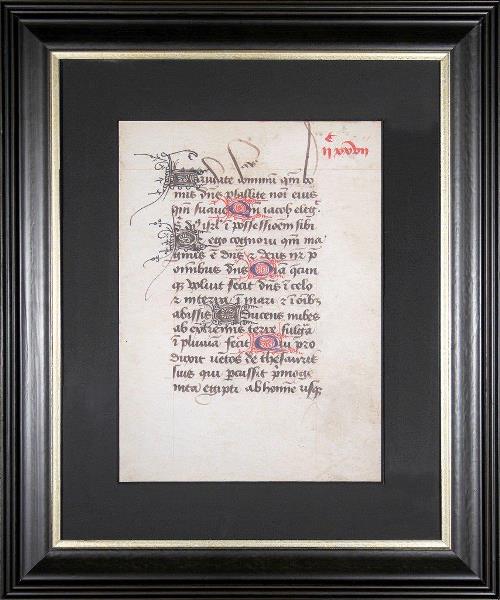 Laudate dominū qm̄ bo
nus dn̄s psallite noī eius
qm̄ suaue Qm̄ iacob eleḡ
dn̄s isrl̄ ī possessioem sibi
Q ego cognoui qm̄ ma
gnus ē dn̄s ⁊ deus nr̄ p̄
omnibus diis Oīa qcun
q̨ voluit fecit dn̄s ī celo
⁊ in terra ī mari ⁊ ī oib̨
abissis Educens nubes
ab extremis terre fulga
ī pluuiā fecit Qui pro
ducit uētos de thesauris
suis qui pcussit p̄moge
nita egipti ab homīe usq̨